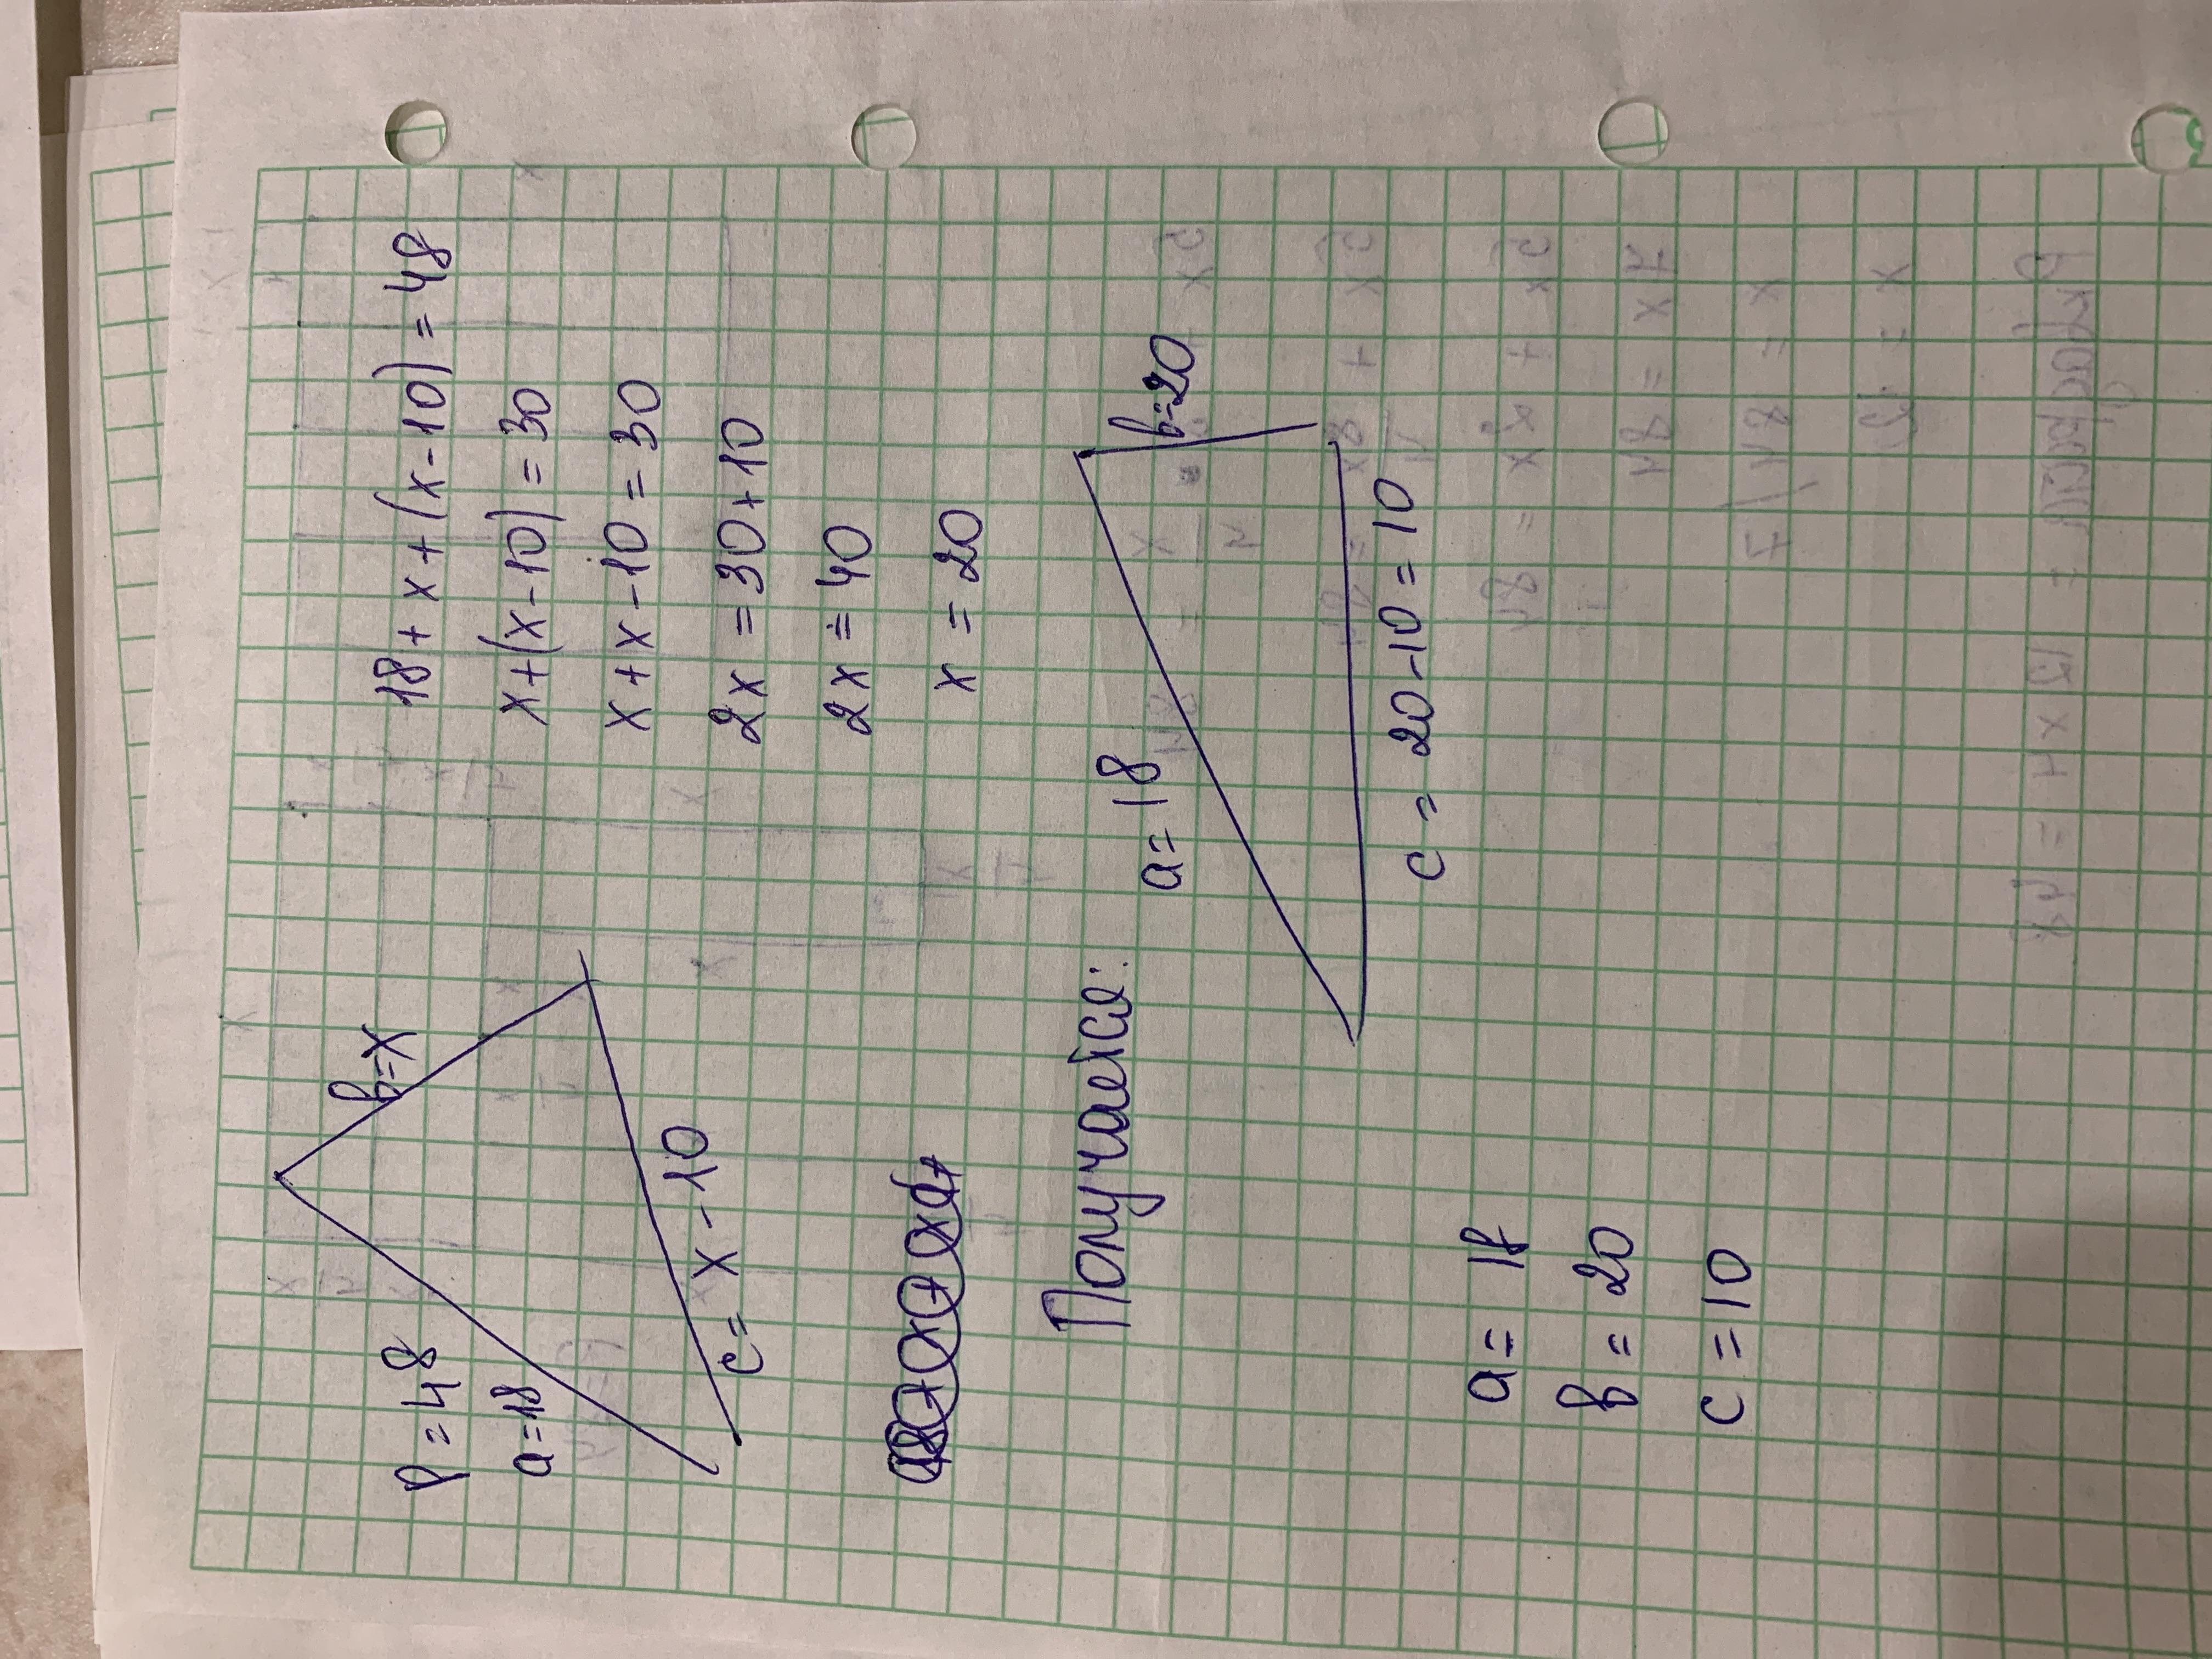 P = 48
a = 18
b = x
c = x - 10
18 + x + (x - 10) = 48
x + (x - 10) = 30
x + x - 10 = 30
2x = 30 + 10
2x = 40
x = 20
Получается:
a = 18
b = 20
c = 20 - 10 = 10
a = 18
b = 20
c = 10